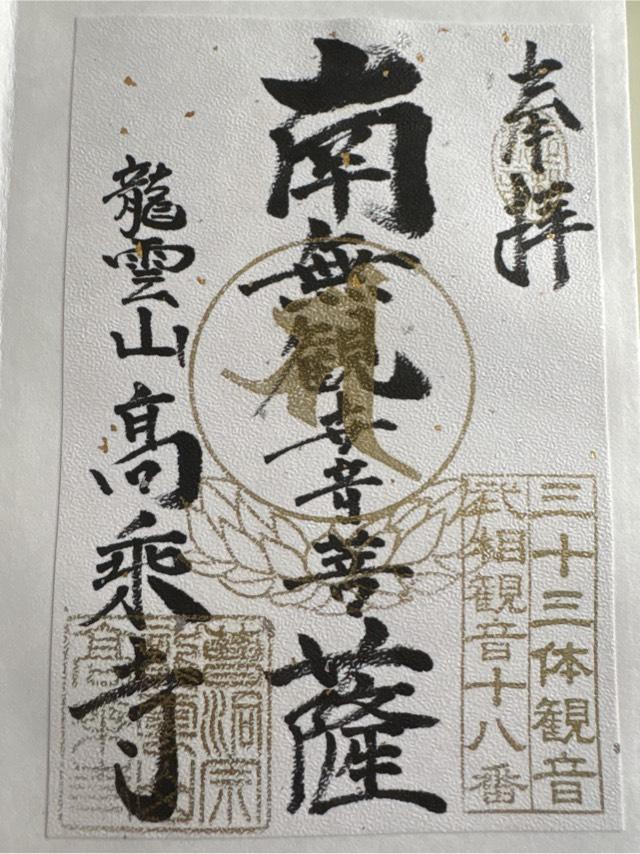 奉拝
三十三体観音
武相観音十八番
南無観世音菩薩
龍雲山 高乗寺
曹洞宗